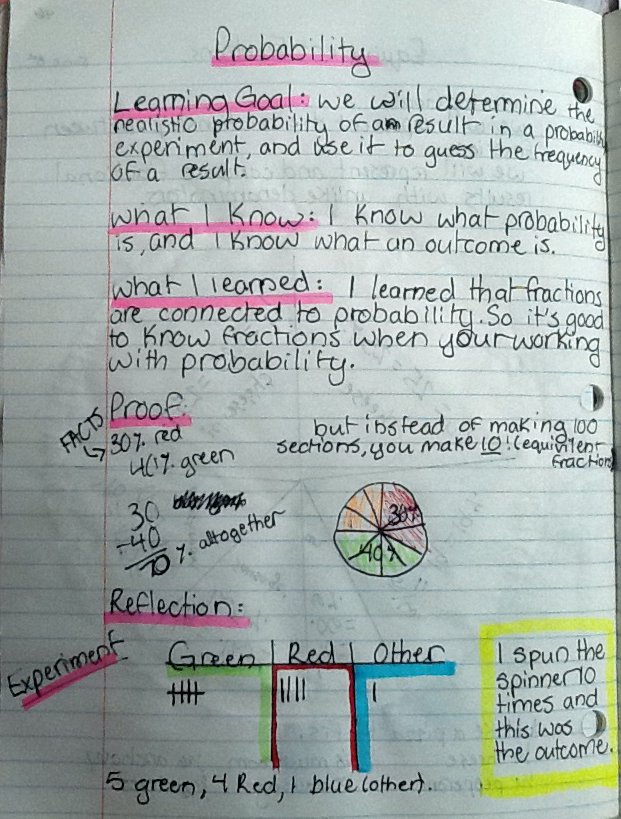 Probability
Learning Goal: we will determine the
realistic probability of an result in a probability
experiment, and use it to guess the frequency
of a result.
what I know: I know what probability
is, and I know what an outcome is.
what I learned: I learned that fractions
are connected to probability. So it's good
to know fractions when your working
with probability.
Proof:
FACTS
30% red
40% green
but instead of making 100
sections, you make 10! (equivilent
fraction)
30
40
70 % altogether
30%
40%
Reflection:
Experiment
Green | Red | Other
5 green, 4 Red, 1 blue (other).
I spun the
spinner 10
times and
this was
the outcome.